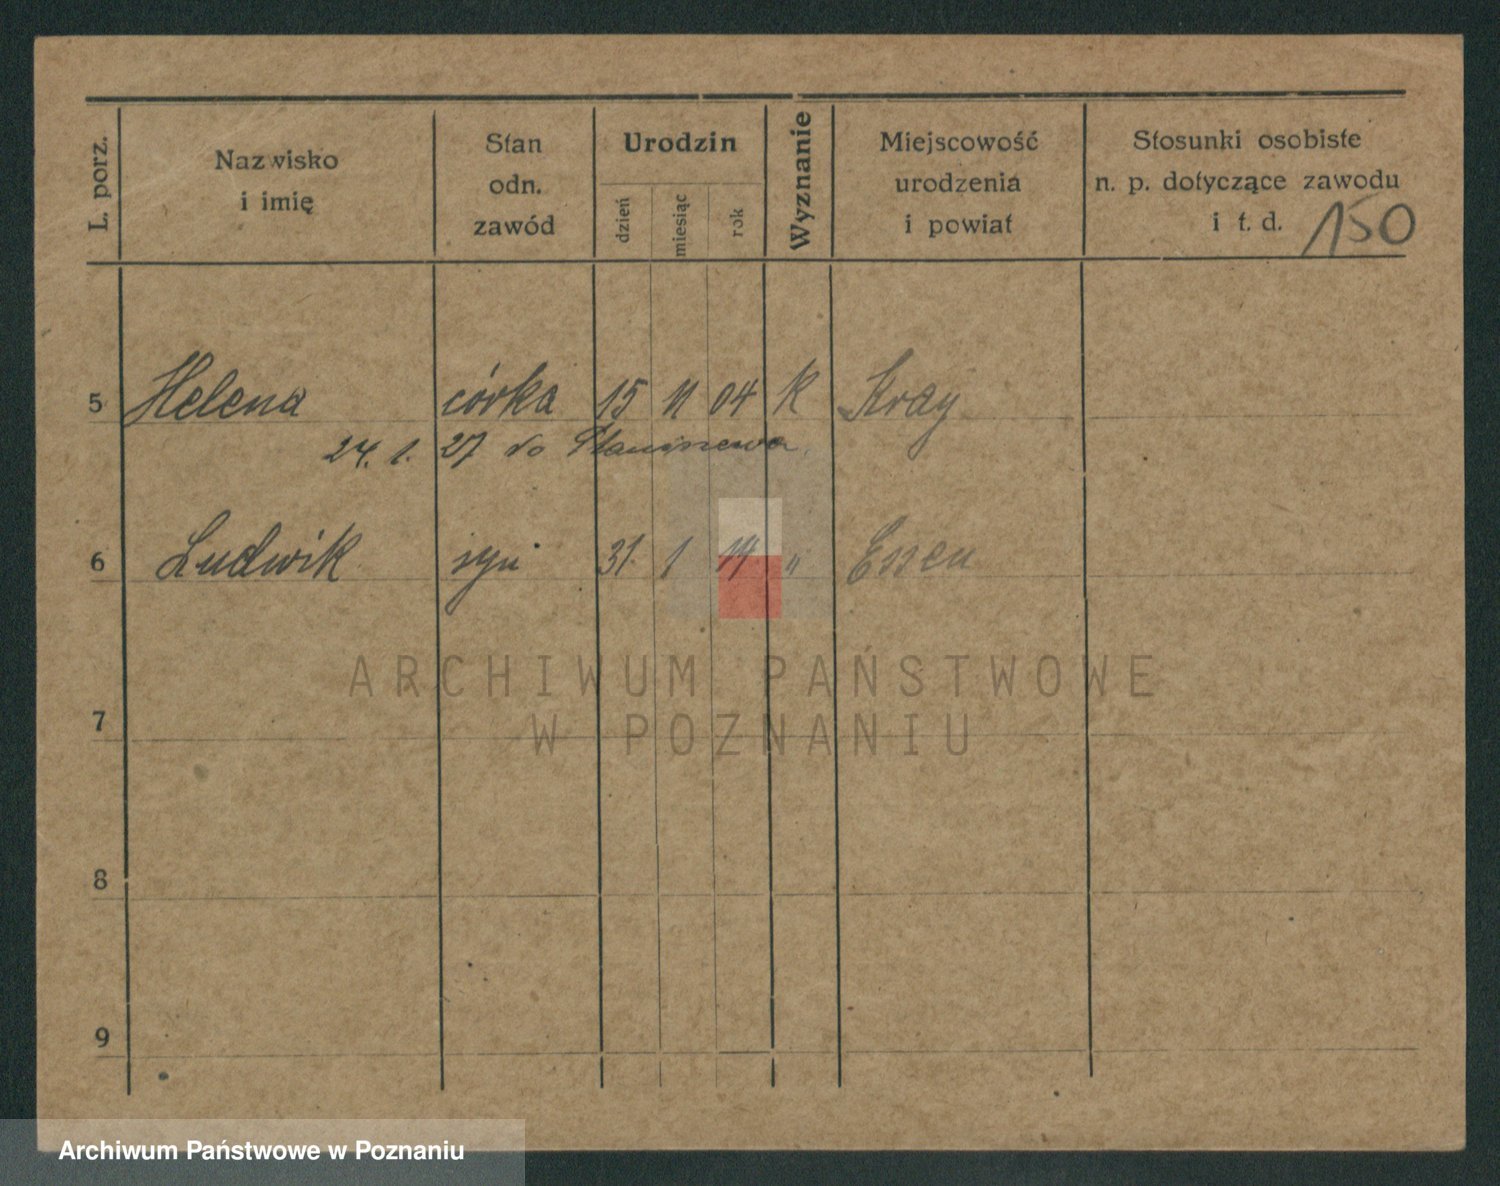 L. porz.
Nazwisko
i imię
Stan
odn.
zawód
Urodzin
dzień
miesiąc
rok
Wyznanie
Miejscowość
urodzenia
i powiat
Stosunki osobiste
n. p. dotyczące zawodu
i t. d. 150
5 Helena córka 15 11 04 K Kray
24. 1. 27 do
6 Ludwik syn 31. 1 14. " Essen
ARCHIWUM PAŃSTWOWE
W POZNANIU
7
8
9
Archiwum Państwowe w Poznaniu